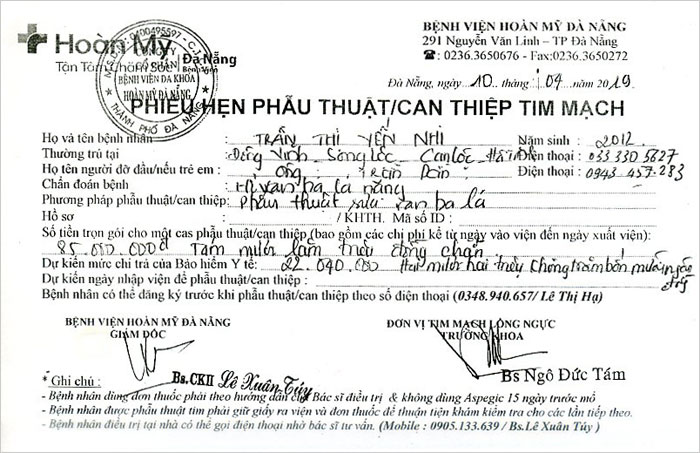 Hoàn Mỹ
Đà Nẵng
Tận Tâm Chăm Sóc
Bệnh viện
0400495597
CÔNG TY
CỔ PHẦN
BỆNH VIỆN ĐA KHOA
HOÀN MỸ ĐÀ NẴNG
THÀNH PHỐ ĐÀ NẴNG
BỆNH VIỆN HOÀN MỸ ĐÀ NẴNG
291 Nguyễn Văn Linh – TP Đà Nẵng
☎: 0236.3650676 - Fax:0236.3650272
Đà Nẵng, ngày 10 tháng 04 năm 2019
PHIẾU HẸN PHẪU THUẬT/CAN THIỆP TIM MẠCH
Họ và tên bệnh nhân : TRẦN THỊ YẾN NHI Năm sinh : 2012
Thường trú tại : Đông Vinh Song Lộc Can Lộc Hà Tĩnh Điện thoại : 033 330 5827
Họ tên người đỡ đầu/nếu trẻ em : Ông : Điện thoại : 0943 457 283
Chẩn đoán bệnh : Hở van ba lá nặng
Phương pháp phẫu thuật/can thiệp: Phẫu thuật sửa van ba lá
Hồ sơ : / KHTH. Mã số ID :
Số tiền trọn gói cho một cas phẫu thuật/can thiệp (bao gồm các chi phí kể từ ngày vào viện đến ngày xuất viện):
85.000.000đ Tám mươi lăm triệu đồng chẵn
Dự kiến mức chi trả của Bảo hiểm Y tế: 22.040.000 Hai mươi hai triệu không trăm bốn mươi ngàn
Dự kiến ngày nhập viện để phẫu thuật/can thiệp :
Bệnh nhân có thể đăng ký trước khi phẫu thuật/can thiệp theo số điện thoại (0348.940.657/ Lê Thị Hạ)
BỆNH VIỆN HOÀN MỸ ĐÀ NẴNG
GIÁM ĐỐC
ĐƠN VỊ TIM MẠCH LỒNG NGỰC
TRƯỞNG KHOA
Bs.CKII Lê Xuân Túy
Bs Ngô Đức Tám
* Ghi chú :
- Bệnh nhân dùng đơn thuốc phải theo hướng dẫn của Bác sĩ điều trị & không dùng Aspegic 15 ngày trước mổ
- Bệnh nhân được phẫu thuật tim phải giữ giấy ra viện và đơn thuốc để thuận tiện khám kiểm tra cho các lần tiếp theo.
- Bệnh nhân điều trị tại nhà có thể gọi điện thoại nhờ bác sĩ tư vấn. (Mobile : 0905.133.639 / Bs.Lê Xuân Túy )